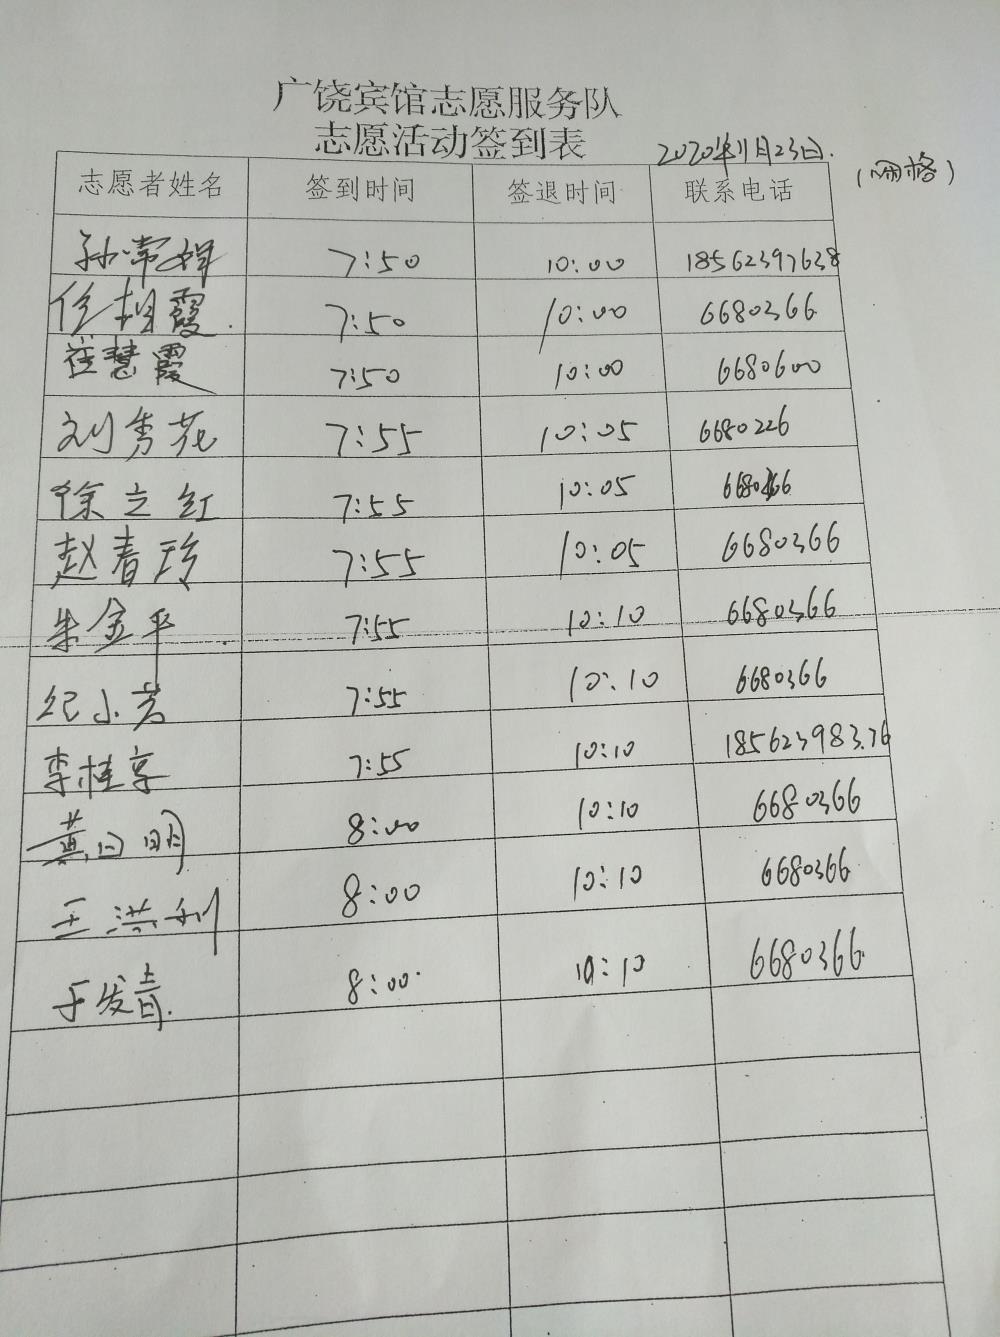 广饶宾馆志愿服务队
志愿活动签到表
2020年11月23日.
志愿者姓名 签到时间 签退时间 联系电话
孙常娟 7:50 10:00 18562397638
任相霞. 7:50 10:00 6680366
崔慧霞 7:50 10:00 6680600
刘秀花 7:55 10:05 6680226
徐立红 7:55 10:05 6680366
赵春玲 7:55 10:05 6680366
朱金平 7:55 10:10 6680366
纪小芳 7:55 10:10 6680366
李桂享 7:55 10:10 18562398376
黄日明 8:00 10:10 6680366
王洪利 8:00 10:10 6680366
于发青. 8:00 10:10 6680366